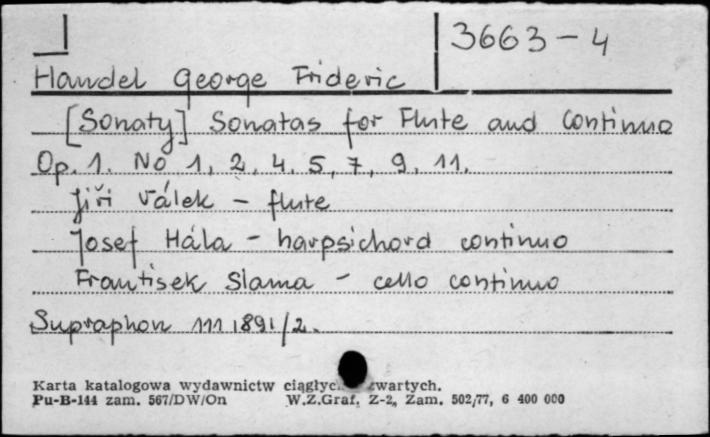 3663-4
Handel George Frideric
[Sonaty] Sonatas for Flute and Continuo
Op. 1. No 1, 2, 4, 5, 7, 9, 11.
Jiří Válek - flute
Josef Hála - harpsichord continuo
Frantisek Slama - cello continuo
Supraphon 111 1891/2.
Karta katalogowa wydawnictw zwartych.
Pu-B-144 zam. 567/DW/On W.Z.Graf. Z-2, Zam. 502/77, 6 400 000